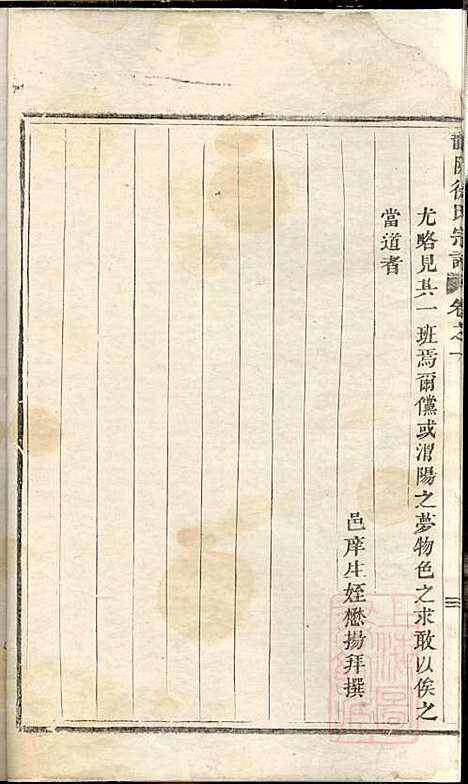 陽徐氏宗譜 卷之
尤略見其一班焉爾儻或渭陽之夢物色之求敢以俟之
當道者
邑庠生姪懋揚拜撰